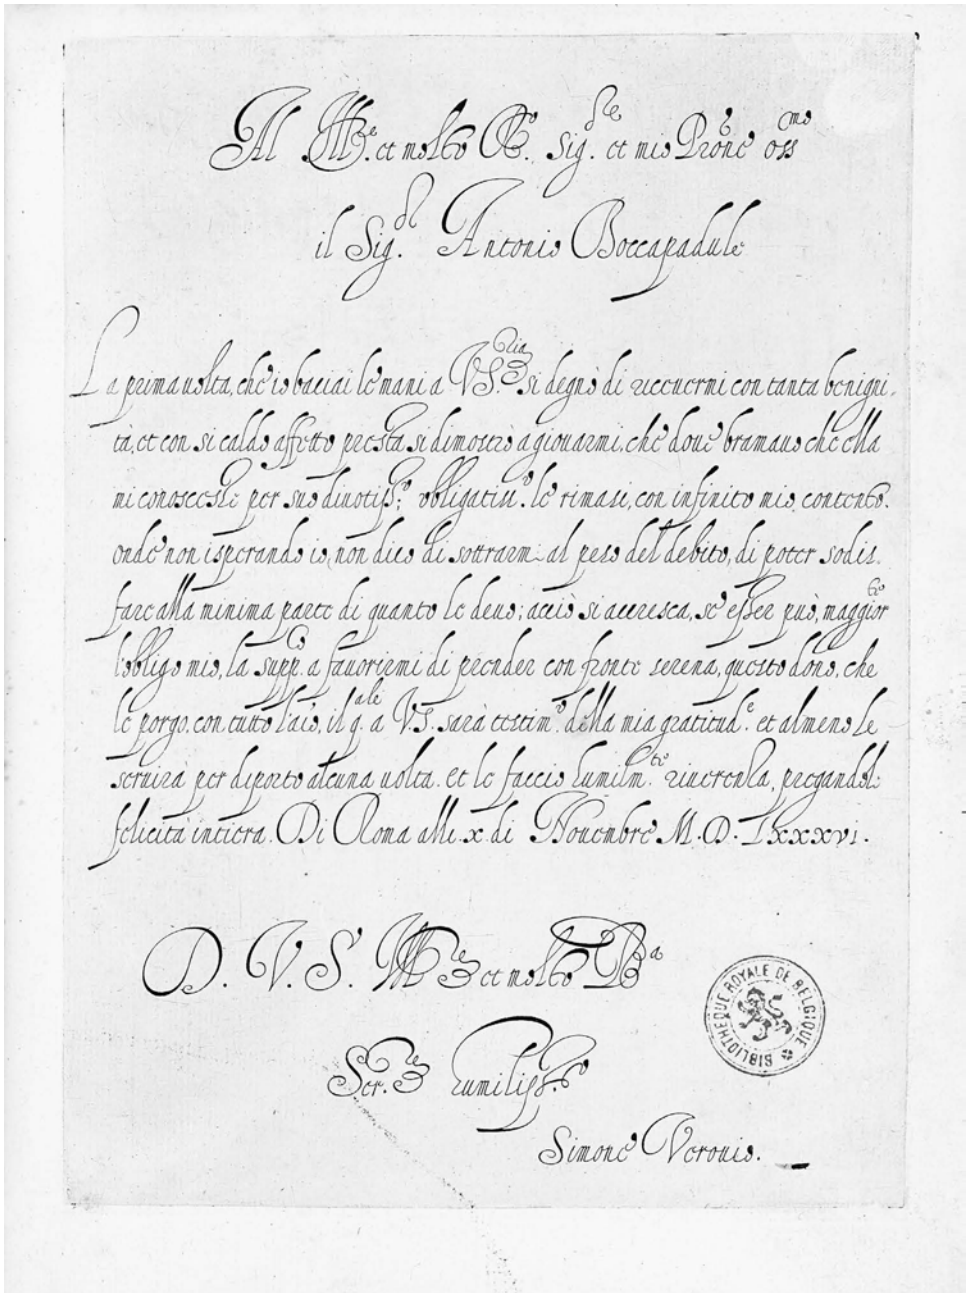 Al Ill.re et molto R.do Sig.re et mio Prône oss.mo
il Sig.r Antonio Boccapadule
La prima uolta, che io baciai le mani a VS.ria si degnò di riceuermi con tanta benigni,
tà, et con si caldo affetto presta si dimostrò a giouarmi, che doue bramauo che ella
mi conoscesse per suo diuotiss.o obligatiss.o le rimasi, con infinito mio contento.
onde non isperando io, non dico di sottrarmi al peso del debito, di poter sodis.
fare alla minima parte di quanto le deuo; acciò si accresca, se esser può, maggior.te
l'obligo mio, la supp.co a fauorirmi di prender con fronte serena, questo dono, che
le porgo con tutto l'aîo, il q.ale a V.S. sarà testim.o della mia gratitud.e et almeno le
seruirà per diporto alcuna uolta. et le faccio humilm.te riuerenza, pregandole
felicità intiera. Di Roma alli .x. di Nouembre M.D.LXXXVI.
D. V. S. Ill.re et molto R.da
Ser.re humiliss.o
Simone Verouio.
BIBLIOTHEQUE ROYALE DE BELGIQUE